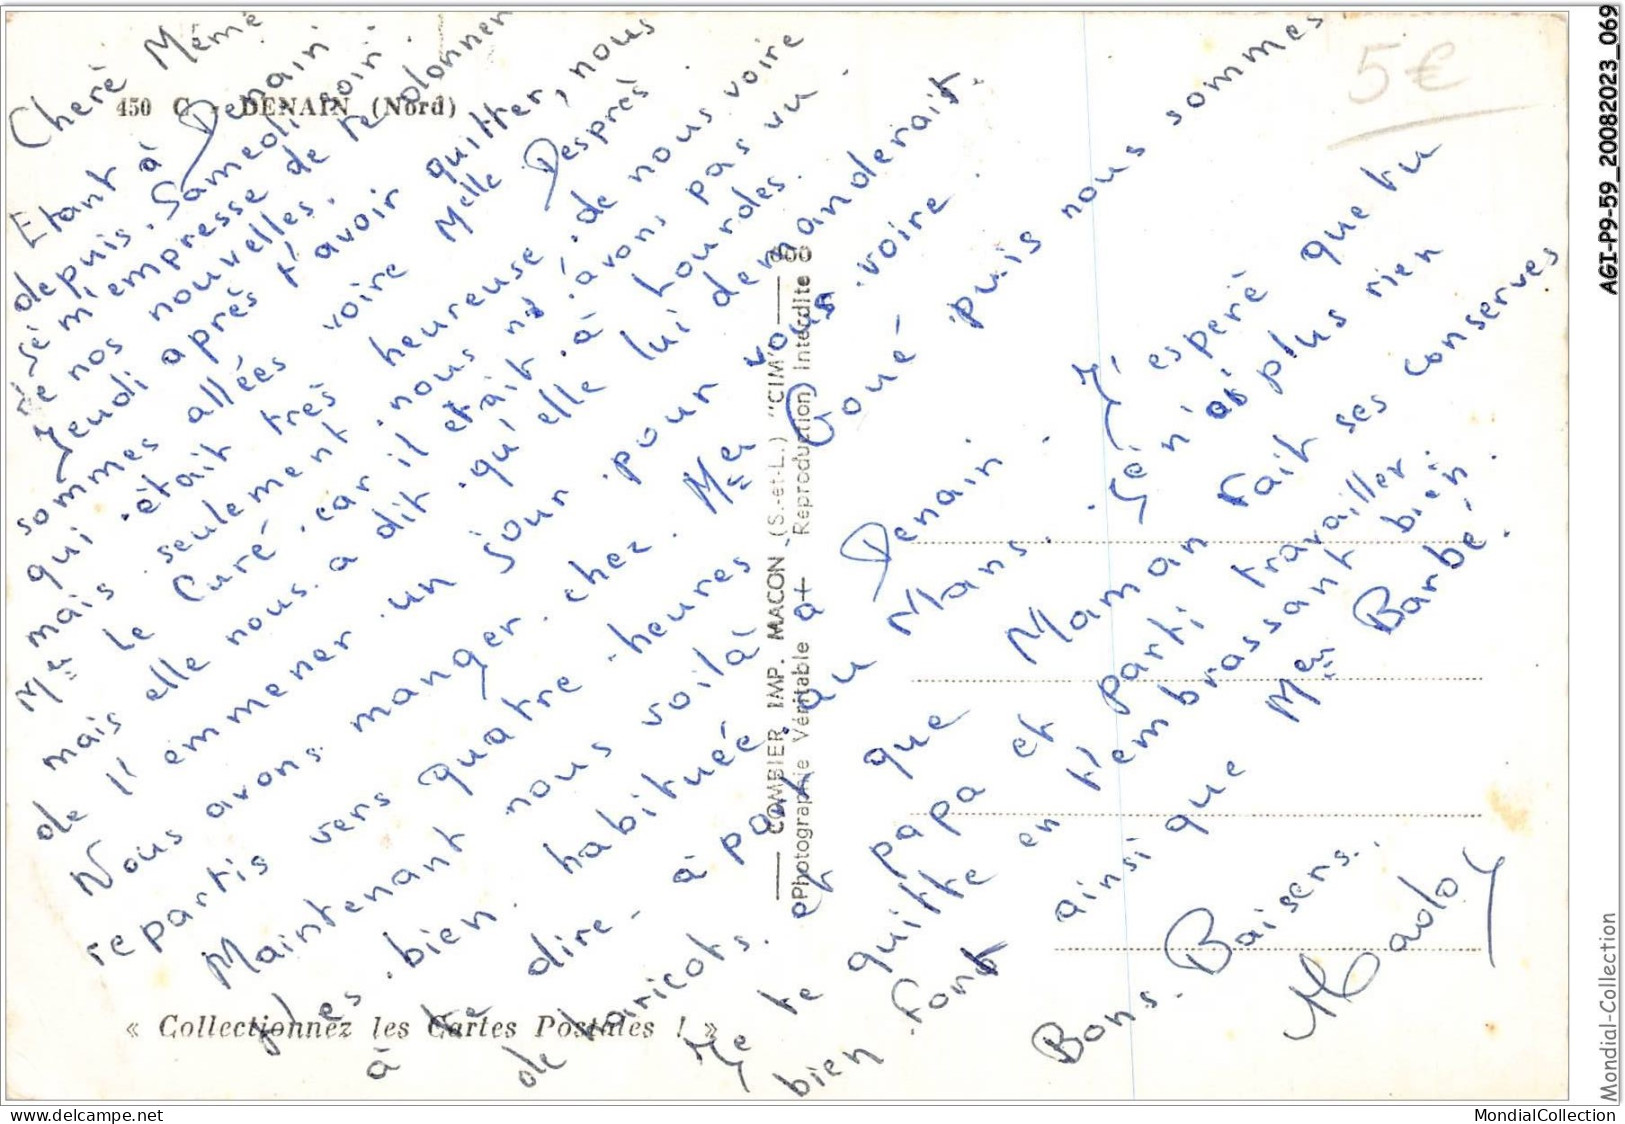 Cheré Mémé
Etant à Denain
depuis. Samedi soir.
Je m'empresse de te donner
de nos nouvelles.
Jeudi après t'avoir quitter, nous
sommes allées voire Melle Desprès
qui était très heureuse. de nous voire
mais seulement nous n'avons pas vu
Mr le Curé. car il était à Lourdes.
mais elle nous a dit qu'elle lui demanderait.
de l'emmener un jour pour vous voire.
Nous avons manger chez. Mer Goué puis nous sommes
repartis vers quatre heures
Maintenant nous voilà à Denain.
les bien. habituée. au Mans. J'esperé que tu
à te dire - à part que Jé n'ai plus rien
de haricots. et papa et Maman fait ses conserves
Je te quitte en t'embrassant bien.
bien fort ainsi que Mer Barbé.
parti travailler.
Bons. Baisers..
5€
450 C - DENAIN (Nord)
« Collectionnez les Cartes Postales ! »
COMBIER IMP. MACON (S.-et-L.) "CIM"
Photographie Véritable - Reproduction Interdite
AGI-P9-59_20082023_069
Mondial-Collection
MondialCollection